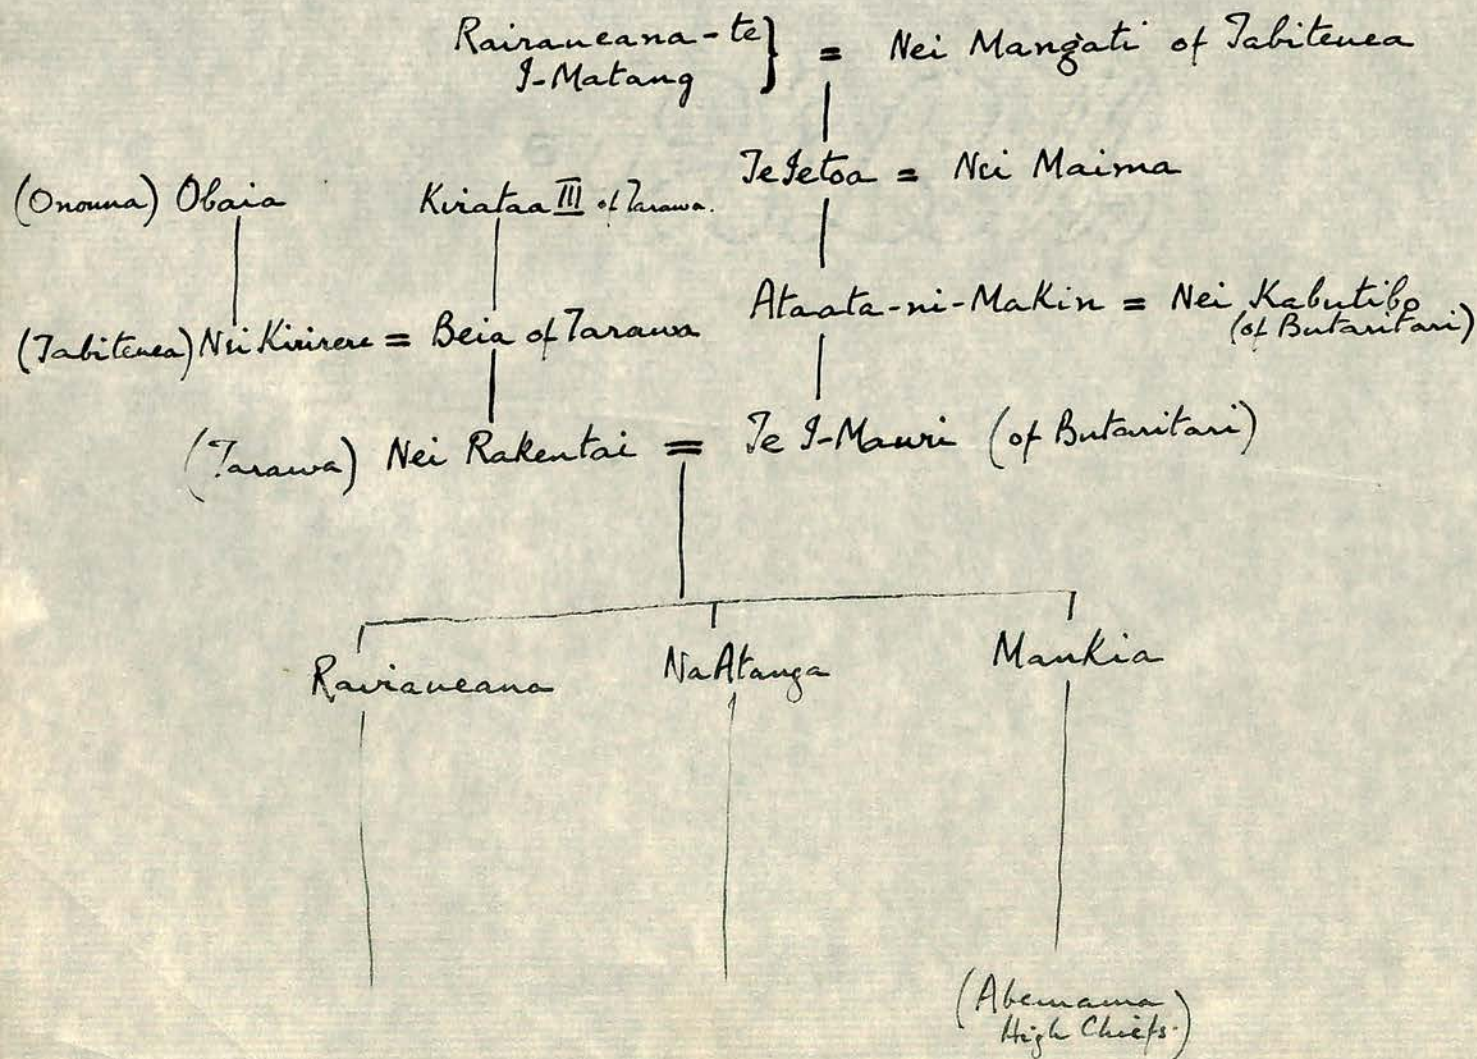 Rairaueana-te } = Nei Mangati of Tabiteuea
I-Matang
TeIetoa = Nei Maima
(Onouna) Obaia Kirataa III of Tarawa.
Ataata-ni-Makin = Nei Kabutibo
(of Butaritari)
(Tabiteuea) Nei Kirirere = Beia of Tarawa
(Tarawa) Nei Rakentai = Te I-Mauri (of Butaritari)
Rairaueana NaAtanga Mankia
(Abemama
High Chiefs.)